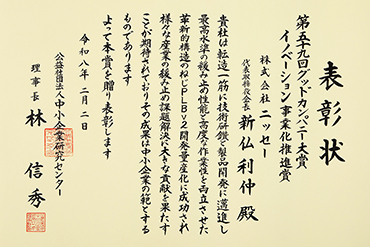 表彰状
第五十九回グッドカンパニー大賞
イノベーション事業化推進賞
株式会社ニッセー
代表取締役会長 新仏利仲殿
貴社は転造一筋に技術研鑽と製品開発に邁進し
最高水準の緩み止め性能と高度な作業性を両立させた
革新的構造のねじPLBv2開発量産化に成功され
様々な産業の緩み止めの課題解決に大きな貢献を果たす
ことが期待されておりその成果は中小企業の範とする
ものであります
よって本賞を贈り表彰します
令和八年二月二日
公益社団法人中小企業研究センター
理事長 林信秀